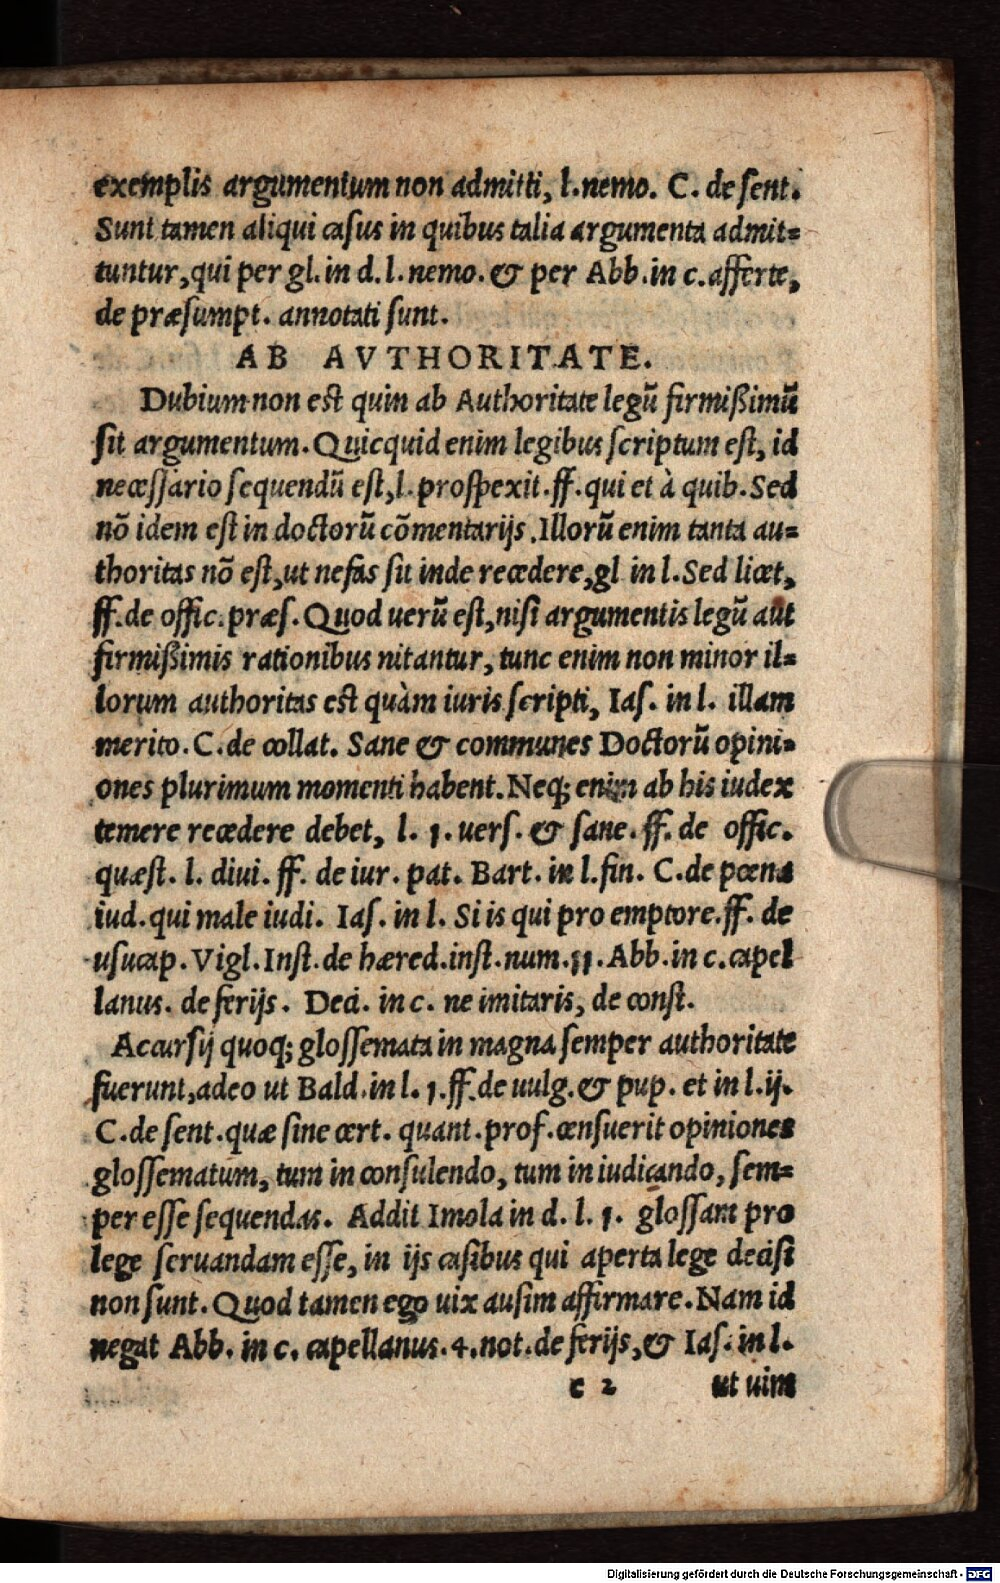 exemplis argumentum non admitti, l.nemo. C. de sent.
Sunt tamen aliqui casus in quibus talia argumenta admit=
tuntur, qui per gl. in d. l. nemo. & per Abb. in c. afferte,
de præsumpt. annotati sunt.
AB AVTHORITATE.
Dubium non est quin ab Authoritate legū firmißimū
sit argumentum. Quicquid enim legibus scriptum est, id
necessario sequendū est, l. prospexit. ff. qui et à quib. Sed
nō idem est in doctorū cōmentarijs. Illorū enim tanta au=
thoritas nō est, ut nefas sit inde recedere, gl in l. Sed licet,
ff. de offic. præs. Quod uerū est, nisi argumentis legū aut
firmißimis rationibus nitantur, tunc enim non minor il=
lorum authoritas est quàm iuris scripti, Ias. in l. illam
merito. C. de collat. Sane & communes Doctorū opini=
ones plurimum momenti habent. Neq; enim ab his iudex
temere recedere debet, l. 1. uers. & sane. ff. de offic.
quæst. l. diui. ff. de iur. pat. Bart. in l. fin. C. de pœna
iud. qui male iudi. Ias. in l. Si is qui pro emptore. ff. de
usucap. Vigl. Inst. de hæred. inst. num. 11. Abb. in c. capel
lanus. de ferijs. Deci. in c. ne imitaris, de const.
Accursij quoq; glossemata in magna semper authoritate
fuerunt, adeo ut Bald. in l. 1. ff. de uulg. & pup. et in l. ij.
C. de sent. quæ sine cert. quant. prof. censuerit opiniones
glossematum, tum in consulendo, tum in iudicando, sem=
per esse sequendas. Addit Imola in d. l. 1. glossam pro
lege seruandam esse, in ijs casibus qui aperta lege decisi
non sunt. Quod tamen ego uix ausim affirmare. Nam id
negat Abb. in c. capellanus. 4. not. de ferijs, & Ias. in l.
c 2 ut uim
Digitalisierung gefördert durch die Deutsche Forschungsgemeinschaft - DFG